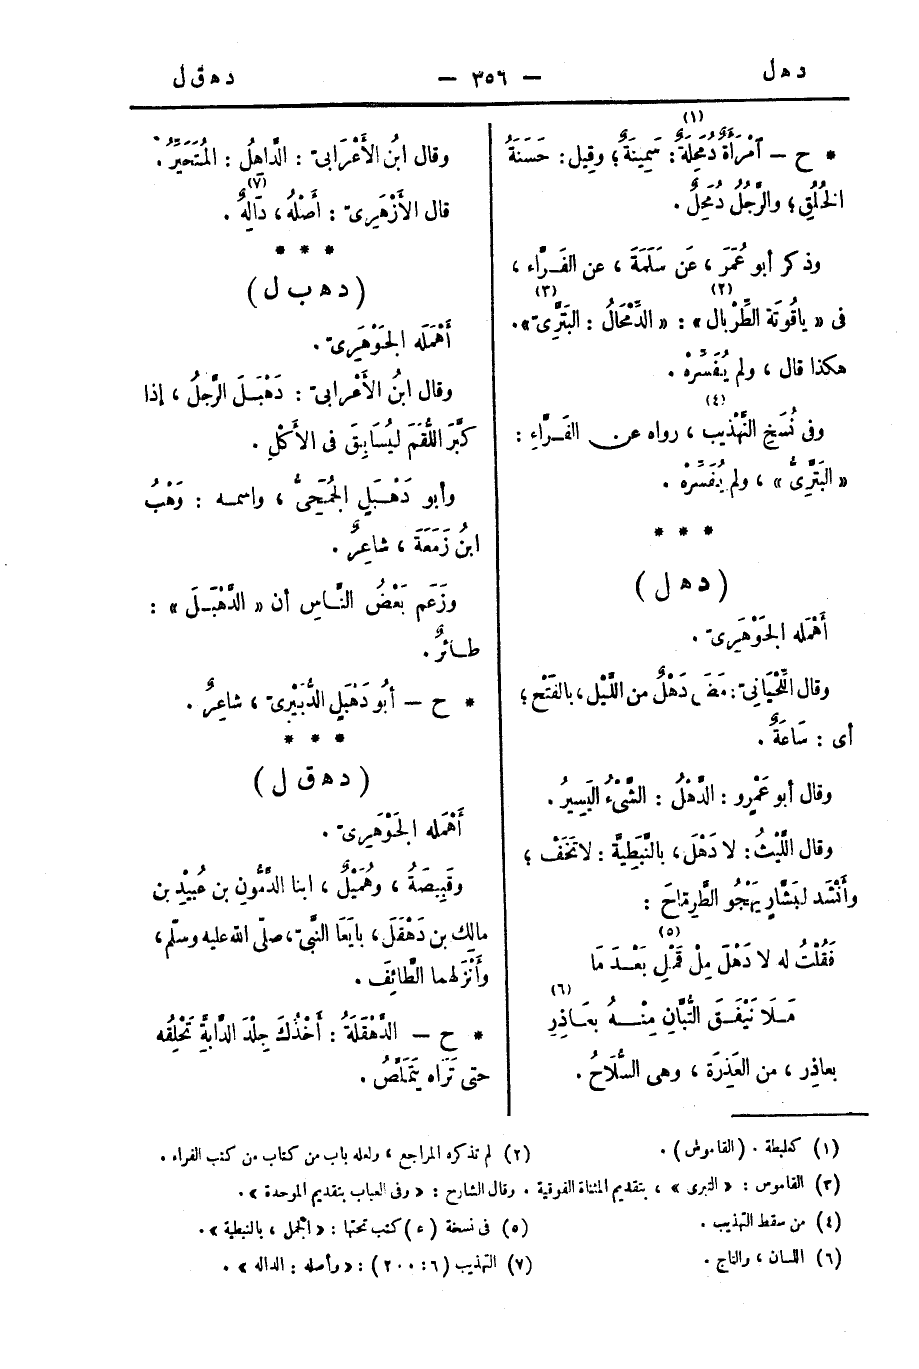 دهل
— ٣٥٦ —
دهقل
(١)
* ح — آمْرَأَةٌ دُمَحِلَةٌ : سَمِينَةٌ ؛ وقِيل : حَسَنَةُ
الخُلُقِ ؛ والرَّجُلُ دُمَحِلٌ .
وذكر أبو عُمَرَ ، عَن سَلَمَةَ ، عن الفَرَّاء ،
(٢) (٣)
فى « ياقُوتَة الطِّرْبال » : « الدِّمْحَالُ : البَتَرِّىّ » .
هكذا قال ، ولم يُفَسِّرْه .
(٤)
وفى نُسَخِ التَّهْذِيب ، رواه عن الفَرَّاءِ :
« البَتَرِّىُّ » ، ولم يُفَسِّرْه .
* * *
( دهل )
أَهْمَله الجَوْهَرِىّ .
وقال اللِّحْيَانِىّ : مَضَى دَهْلٌ من اللَّيْل ، بالفَتْح ؛
أى : سَاعَةٌ .
وقال أبو عَمْرٍو : الدَّهْلُ : الشَّىْءُ اليَسِيرُ .
وقال اللَّيْثُ : لا دَهْلَ ، بالنَّبَطِيَّة : لا تَخَفْ ؛
وأَنْشَد لبَشَّارٍ يَهْجُو الطَّرِمّاحَ :
(٥)
فَقُلْتُ له لا دَهْلَ مِلْ قَمْلِ بَعْدَ مَا
(٦)
مَلَا نَيْفَقَ التُّبَّانِ مِنْهُ بعَاذِرِ
بعاذِر ، من العَذِرَة ، وهى السُّلَاحُ .
وقال ابنُ الأَعْرَابىّ : الدَّاهِلُ : المُتَحَيِّرُ .
(٧)
قال الأَزْهَرِىّ : أَصْلُهُ ، دَالِهٌ .
* * *
( دهبل )
أَهْمَله الجَوْهَرِىّ .
وقال ابنُ الأَعْرابىّ : دَهْبَلَ الرَّجلُ ، إذا
كَبَّرَ اللُّقَمَ ليُسَابِقَ فى الأَكْلِ .
وأبو دَهْبَلٍ الجُمَحِىُّ ، واسمه : وَهْبُ
ابنُ زَمَعَةَ ، شاعِرٌ .
وزَعَم بَعْضُ النَّاسِ أن « الدَّهْبَلَ » :
طائرٌ .
* ح — أبُو دَهْبَلٍ الدُّبَيْرِىّ ، شاعِرٌ .
* * *
( دهقل )
أَهْمَله الجَوْهَرِىّ .
وقَبِيصَةُ ، وهُمَيْلٌ ، ابنا الدَّمُّونِ بن عُبيْدِ بن
مالِك بن دَهْقَلَ ، بايَعَا النَّبىّ ، صلّى الله عليه وسلّم ،
وأَنْزَلهما الطَّائِفَ .
* ح — الدَّهْقَلَةُ : أَخْذُكَ جِلْدَ الدَّابَّةِ تَحْلِقُه
حتى تَرَاه يَتَمَلَّصُ .
(١) كعلبطة . (القاموس) .
(٢) لم تذكره المراجع ، ولعله باب من كتاب من كتب الفراء .
(٣) القاموس : « التبرى » ، بتقديم المثناة الفوقية . وقال الشارح : « وفى العباب بتقديم الموحدة » .
(٤) من سقط التهذيب .
(٥) فى نسخة (ء) كتب تحتها : « الجمل ، بالنبطية » .
(٦) اللسان ، والتاج .
(٧) التهذيب (٦ : ٢٠٠) : « وأصله : الداله » .